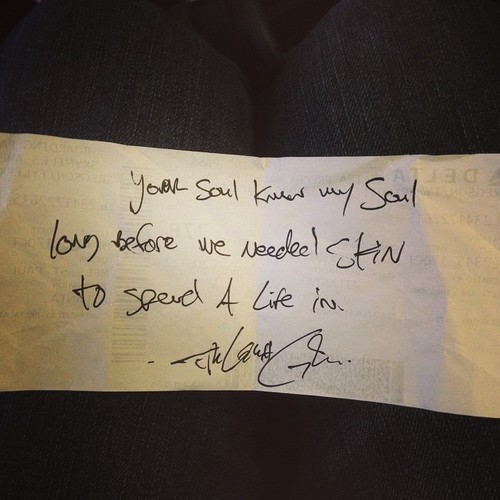 your soul knew my soul
long before we needed skin
to spend A life in.